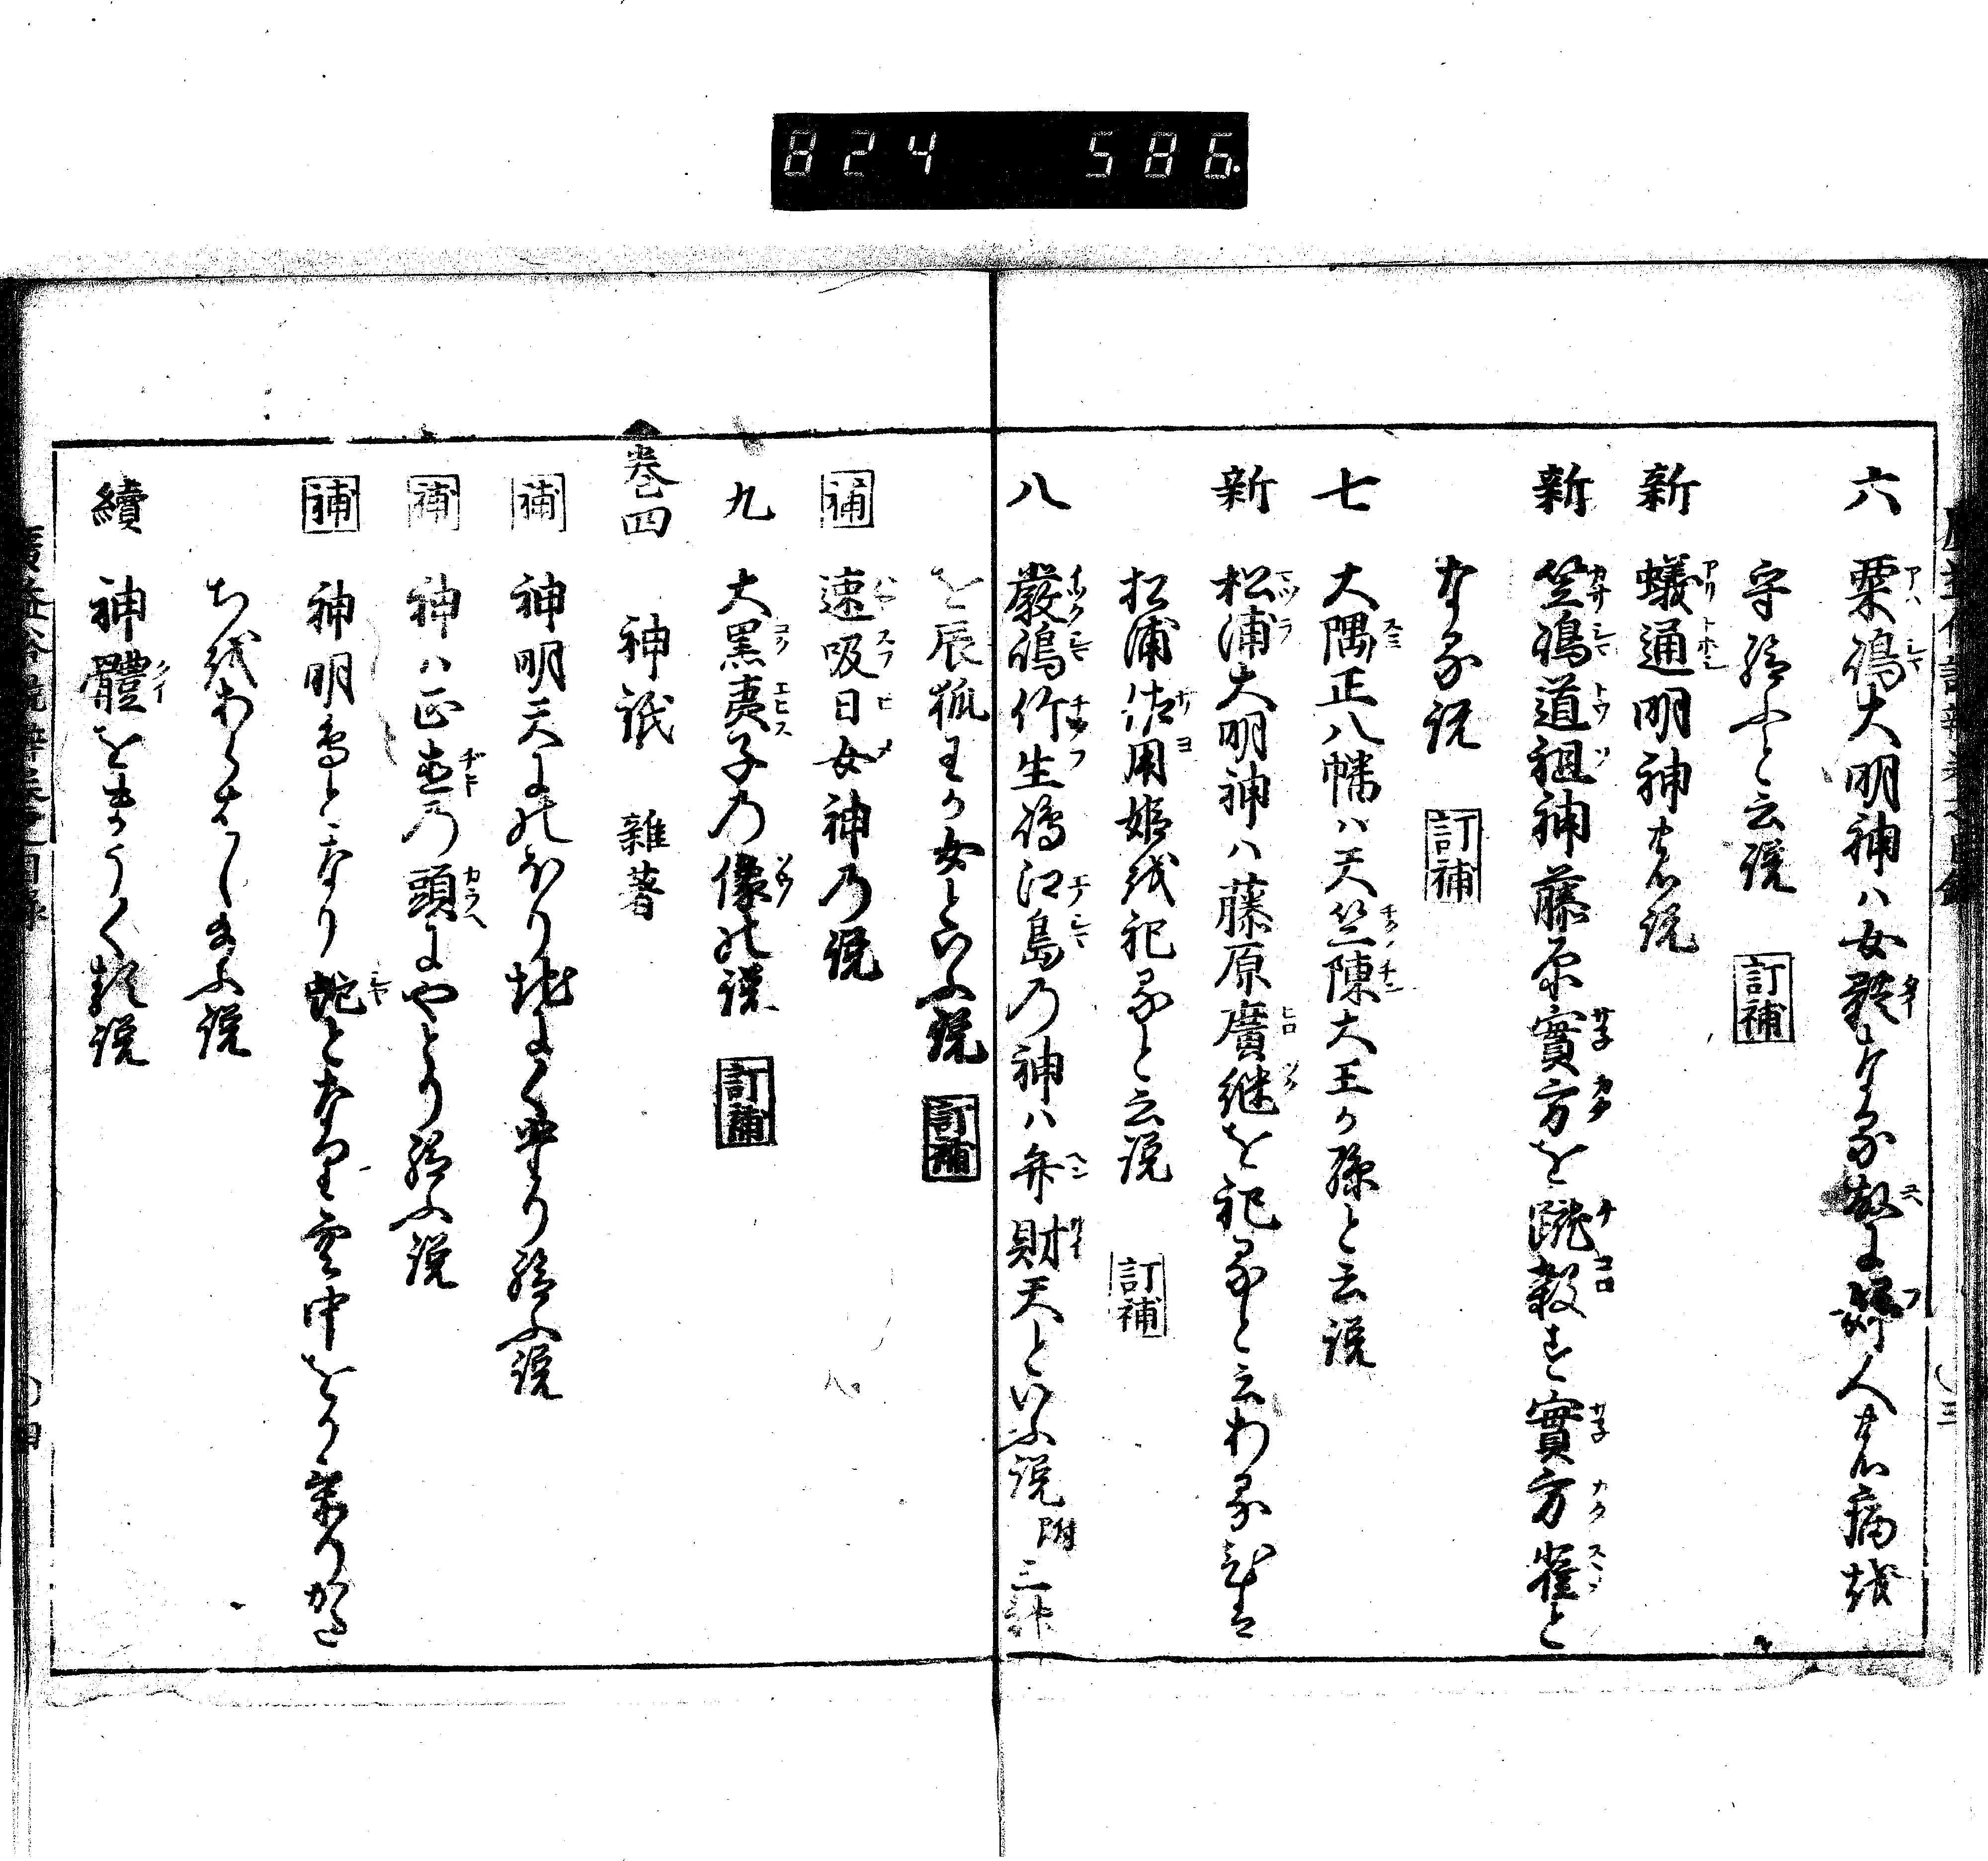 824 586.
六 粟嶋大明神ハ女體なる故に婦人の病を
守給ふと云説 訂補
新 蟻通明神の説
新 笠嶋道祖神藤原實方を蹴殺す實方雀と
なる説 訂補
七 大隅正八幡ハ天竺陳大王か孫と云説
新 松浦大明神ハ藤原廣継を祀ると云わるひは
松浦佐用姫を祀ると云説 訂補
八 嚴嶋竹生嶋江島乃神ハ弁財天といふ説 附三
を辰狐王の女といふ説 訂補
補 速吸日女神乃説
九 大黒夷子乃像の説 訂補
巻四 神祇 雜著
補 神明天にのほり地にくたり給ふ説
補 神ハ正直乃頭にやとり給ふ説
補 神明鳥となり蛇となり雲中をかけりかた
ちをあらはしたまふ説
續 神體をまうく類説